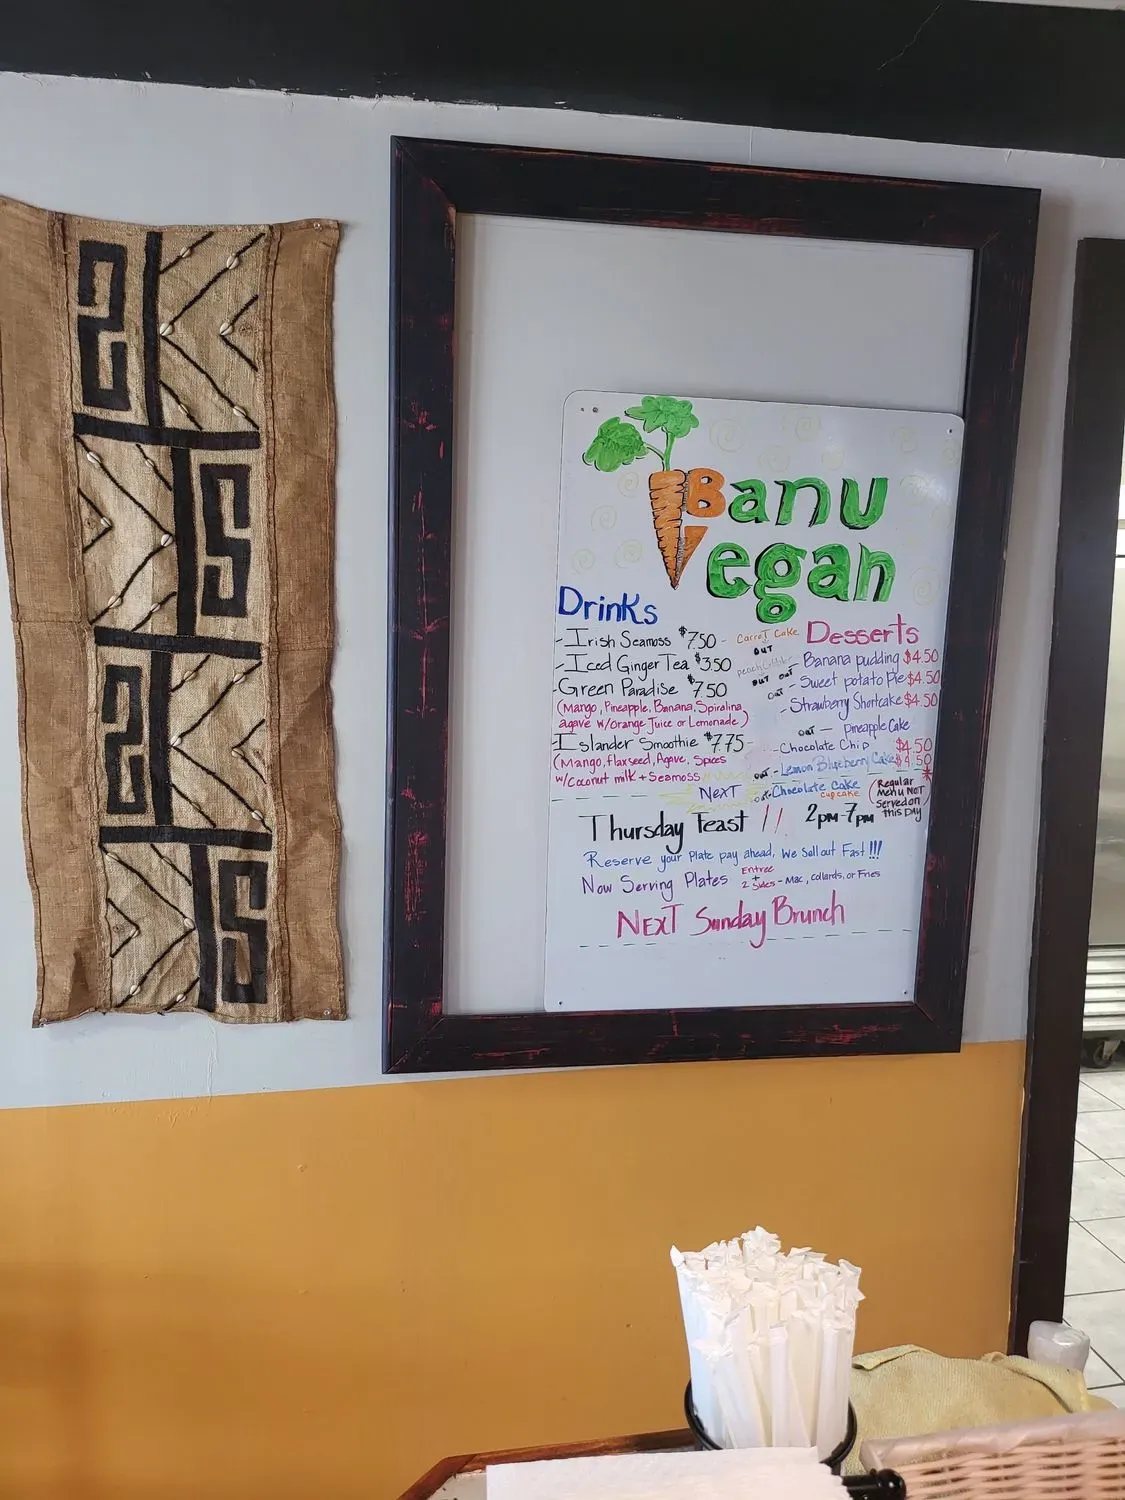 Banu
Vegan
Drinks
- Irish Seamoss $7.50 -
- Iced Ginger Tea $3.50
- Green Paradise $7.50
(Mango, Pineapple, Banana, Spirolina,
agave w/orange Juice or Lemonade)
- Islander Smoothie $7.75 -
(Mango, flaxseed, Agave, Spices
w/coconut milk + Seamoss
Carrot Cake
OUT
Desserts
OUT OUT - Banana pudding $4.50
OUT - Sweet potato Pie $4.50
- Strawberry Shortcake $4.50
OUT - Pineapple Cake
- Chocolate Chip $4.50
OUT - Lemon Blueberry Cake $4.50
OUT - Chocolate Cake
Cupcake
*
(Regular
Menu NOT
Served on
this DAY)
NexT
Thursday Feast !! 2pm-7pm
Reserve your Plate pay ahead, We Sell out Fast!!!
Now Serving Plates Entree
+
2 Sides - Mac, collards, or Fries
NexT Sunday Brunch